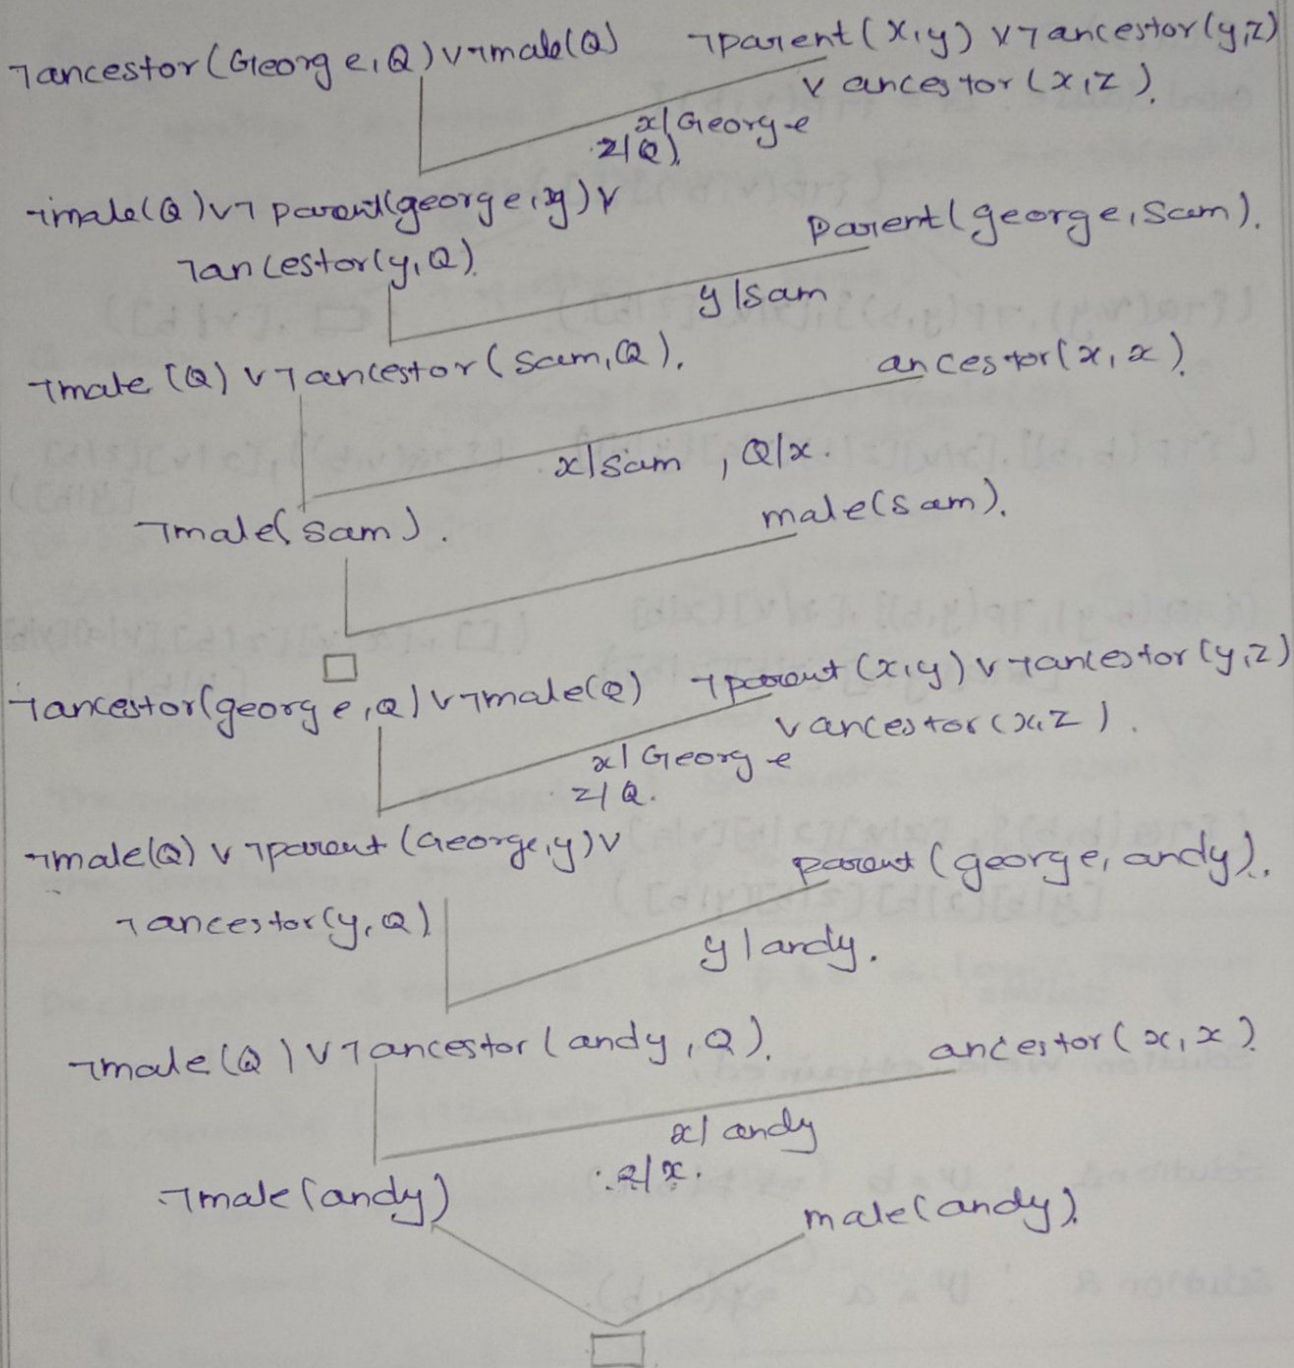 ¬ancestor(George,Q) ∨ ¬male(Q) ¬parent(x,y) ∨ ¬ancestor(y,z)
∨ ancestor(x,z).
x|George
z|Q).
¬male(Q) ∨ ¬parent(george,y) ∨
¬ancestor(y,Q).
parent(george,Sam).
y|sam
¬male(Q) ∨ ¬ancestor(Sam,Q).
ancestor(x,x).
x|sam , Q|x.
¬male(sam).
male(sam).
□
¬ancestor(george,Q) ∨ ¬male(Q) ¬parent(x,y) ∨ ¬ancestor(y,z)
∨ ancestor(x,z).
x|George
z|Q.
¬male(Q) ∨ ¬parent(George,y) ∨
parent(george,andy).
¬ancestor(y,Q)
y|andy.
¬male(Q) ∨ ¬ancestor(andy,Q).
ancestor(x,x).
x|andy
Q|x.
¬male(andy)
male(andy).
□